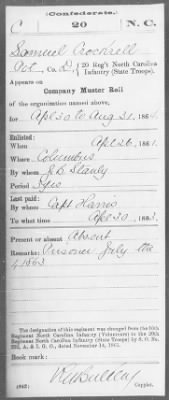 (Confederate.)
C 20 N. C.
Samuel Crockrell
Pvt, Co. D, 20 Reg't North Carolina Infantry (State Troops).
Appears on
Company Muster Roll
of the organization named above,
for Apl 30 to Aug 31, 186
Enlisted:
When Apl 26, 1861.
Where Columbus
By whom J. B. Stanly
Period 3 yrs
Last paid:
By whom Capt Harris
To what time Apl 30, 1863.
Present or absent Absent
Remarks: Prisoner July the
1 1863
The designation of this regiment was changed from the 10th
Regiment North Carolina Infantry (Volunteers) to the 20th
Regiment North Carolina Infantry (State Troops) by S. O. No.
A. & I. G. O., dated November 14, 1861.
Book mark:
(642)
Copyist.